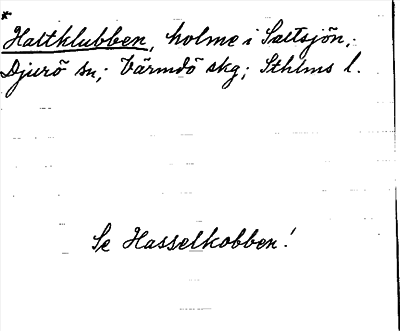 *
Hattklubben, holme i Saltsjön,
Djurö sn; Värmdö skg; Sthlms l.
Se Hasselkobben!